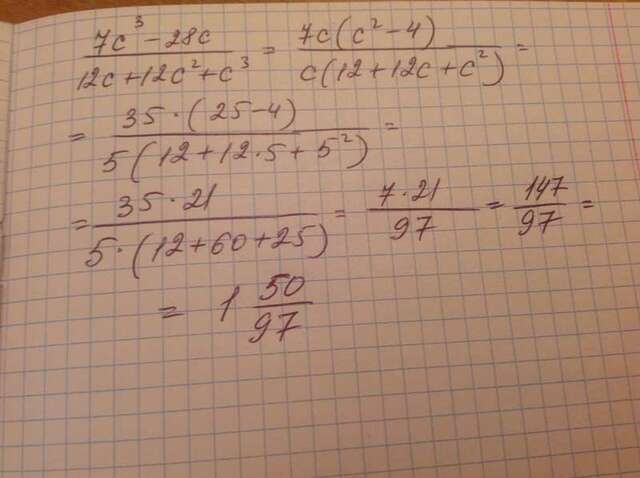 (7c³ − 28c)/(12c + 12c² + c³) = 7c(c² − 4)/c(12 + 12c + c²) =
= 35·(25−4)/5(12 + 12·5 + 5²) =
= 35·21/5·(12+60+25) = 7·21/97 = 147/97 =
= 1 50/97